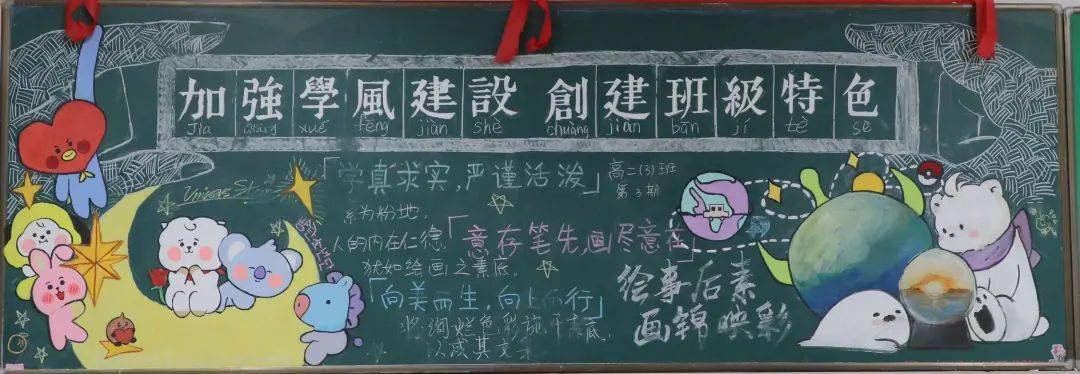 加強學風建設 創建班級特色
Jiā Qiáng xué fēng jiàn shè chuàng jiàn bān jí tè sè
「学真求实,严谨活泼」
高二(3)班
第3期
素为粉地,
人的内在仁德,
犹如绘画之素底。
「意存笔先,画尽意在」
「向美而生,向上而行」
将绚烂色彩施于素底,
以成其文采
绘事后素
画锦映彩